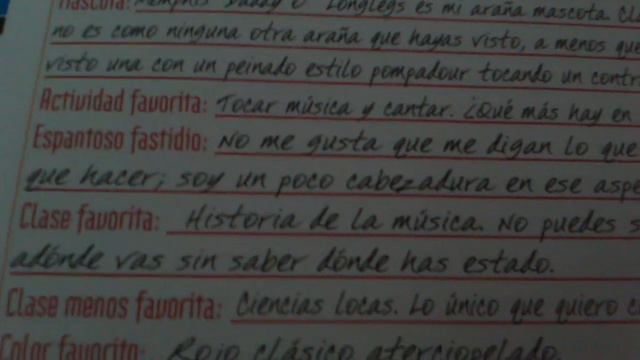 Mascota: Memphis Daddy O Longlegs es mi araña mascota.
no es como ninguna otra araña que hayas visto, a menos que
visto una con un peinado estilo pompadour tocando un contr
Actividad favorita: Tocar música y cantar. ¿Qué más hay en
Espantoso fastidio: No me gusta que me digan lo que
que hacer; soy un poco cabezadura en ese aspe
Clase favorita: Historia de la música. No puedes s
adónde vas sin saber dónde has estado.
Clase menos favorita: Ciencias locas. Lo único que quiero c
Color favorito: Rojo clásico aterciopelado.